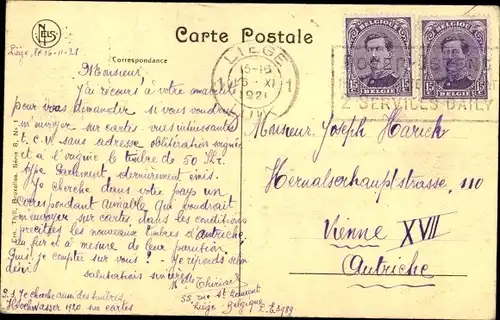 Carte Postale
Correspondance
Liège, le 16-11-21
Monsieur,
J'ai recours à votre amabilité
pour vous demander si vous voudriez
m'envoyer sur cartes vues intéressantes
T.C.V. sans adresse oblitération soignée
et à l'origine le timbre de 50 Kr.
type Parlement, dernièrement émis.
Je cherche dans votre pays un
correspondant aimable qui voudrait
m'envoyer sur cartes, dans les conditions
précitées les nouveaux timbres d'Autriche,
au fur et à mesure de leur parution.
Puis-je compter sur vous? Je réponds selon
désir.
salutations sincères.
Thiriar
55, rue St Laurent
Liège Belgique
Je cherche aussi des timbres
Hochwasser 1920 sur cartes
BELGIQUE
15 15
BELGIË
BELGIQUE
15 15
BELGIË
LIEGE
15-16
XI
1 1
1921
2 SERVICES DAILY
Monsieur Joseph Harich
Hernalserhauptstrasse, 110
Vienne XVII
Autriche
Bruxelles. Série 8, N°